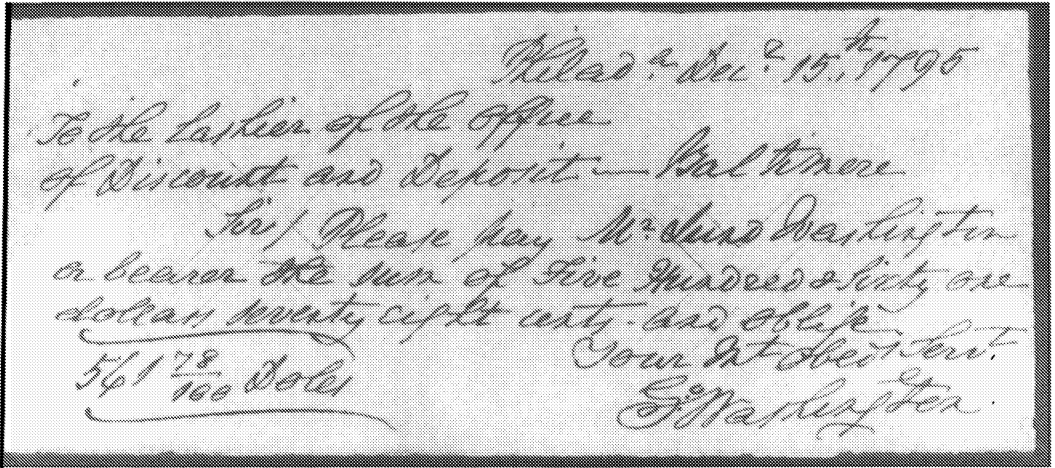 Philad.a Decr. 15.th 1795
To the Cashier of the Office
of Discount and Deposit — Baltimore
Sir/ Please pay Mr Lund Washington
or bearer the sum of Five Hundred & sixty one
dollars seventy eight cents - and oblige
Your Mt Obedt Servt.
561 78/100 Dolls
Go. Washington.